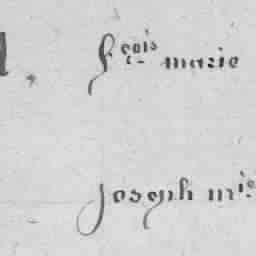 fçois marie
joseph mie